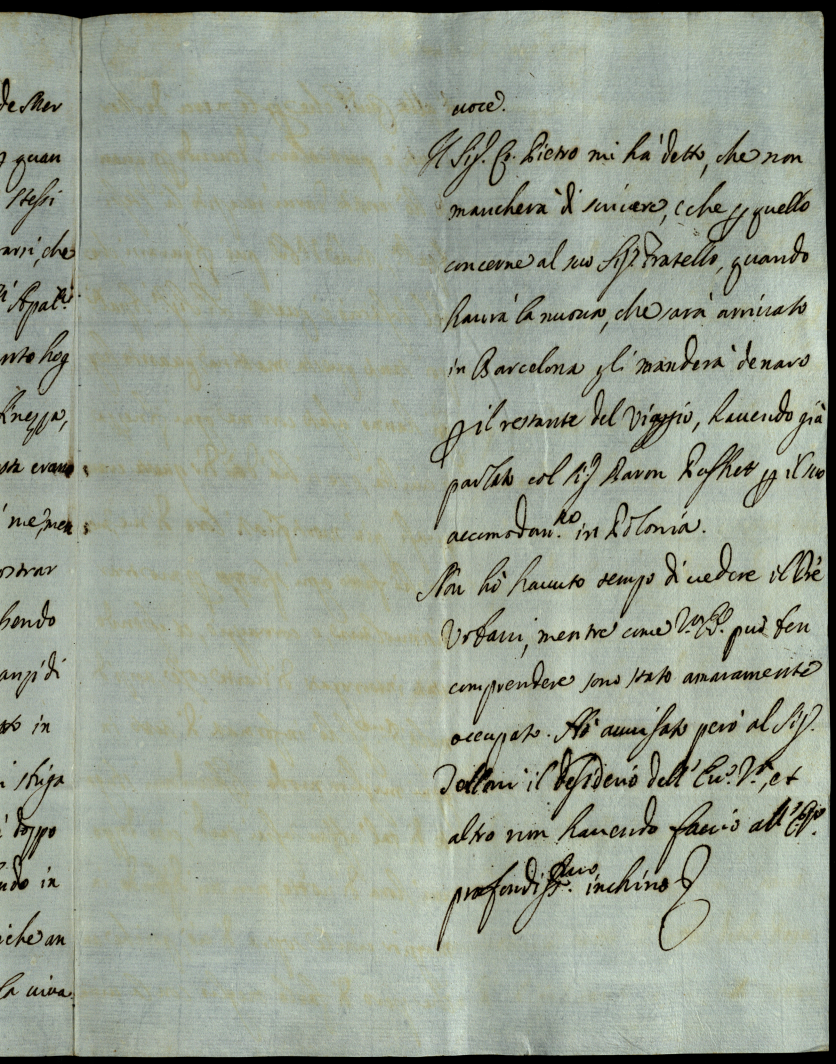 de Mer
quan
stessi
arsi, che
Apal.ti
nto hog
Knezza,
sta erano
me, men
ostrar
hendo
anzi di
in
striga
doppo
ndo in
iche an
la viva
voce.
Il Sig. Co. Pietro mi hà detto, che non
mancherà di scrivere, e che p quello
concerne al suo Sig. Fratello, quando
haurà la nuova, che sarà arrivato
in Barcelona gli manderà denaro
p il restante del Viaggio, havendo già
parlato col Sig Baron p il suo
accomodam.to in Polonia.
Non hò havuto tempo di vedere il Pre
Urbani, mentre come V. E. può ben
comprendere sono stato amaramente
occupato. Hò avvisato però al Sig.
il desiderio dell' Ecc. V., et
altro non havendo faccio all'
profondiss.mo inchino